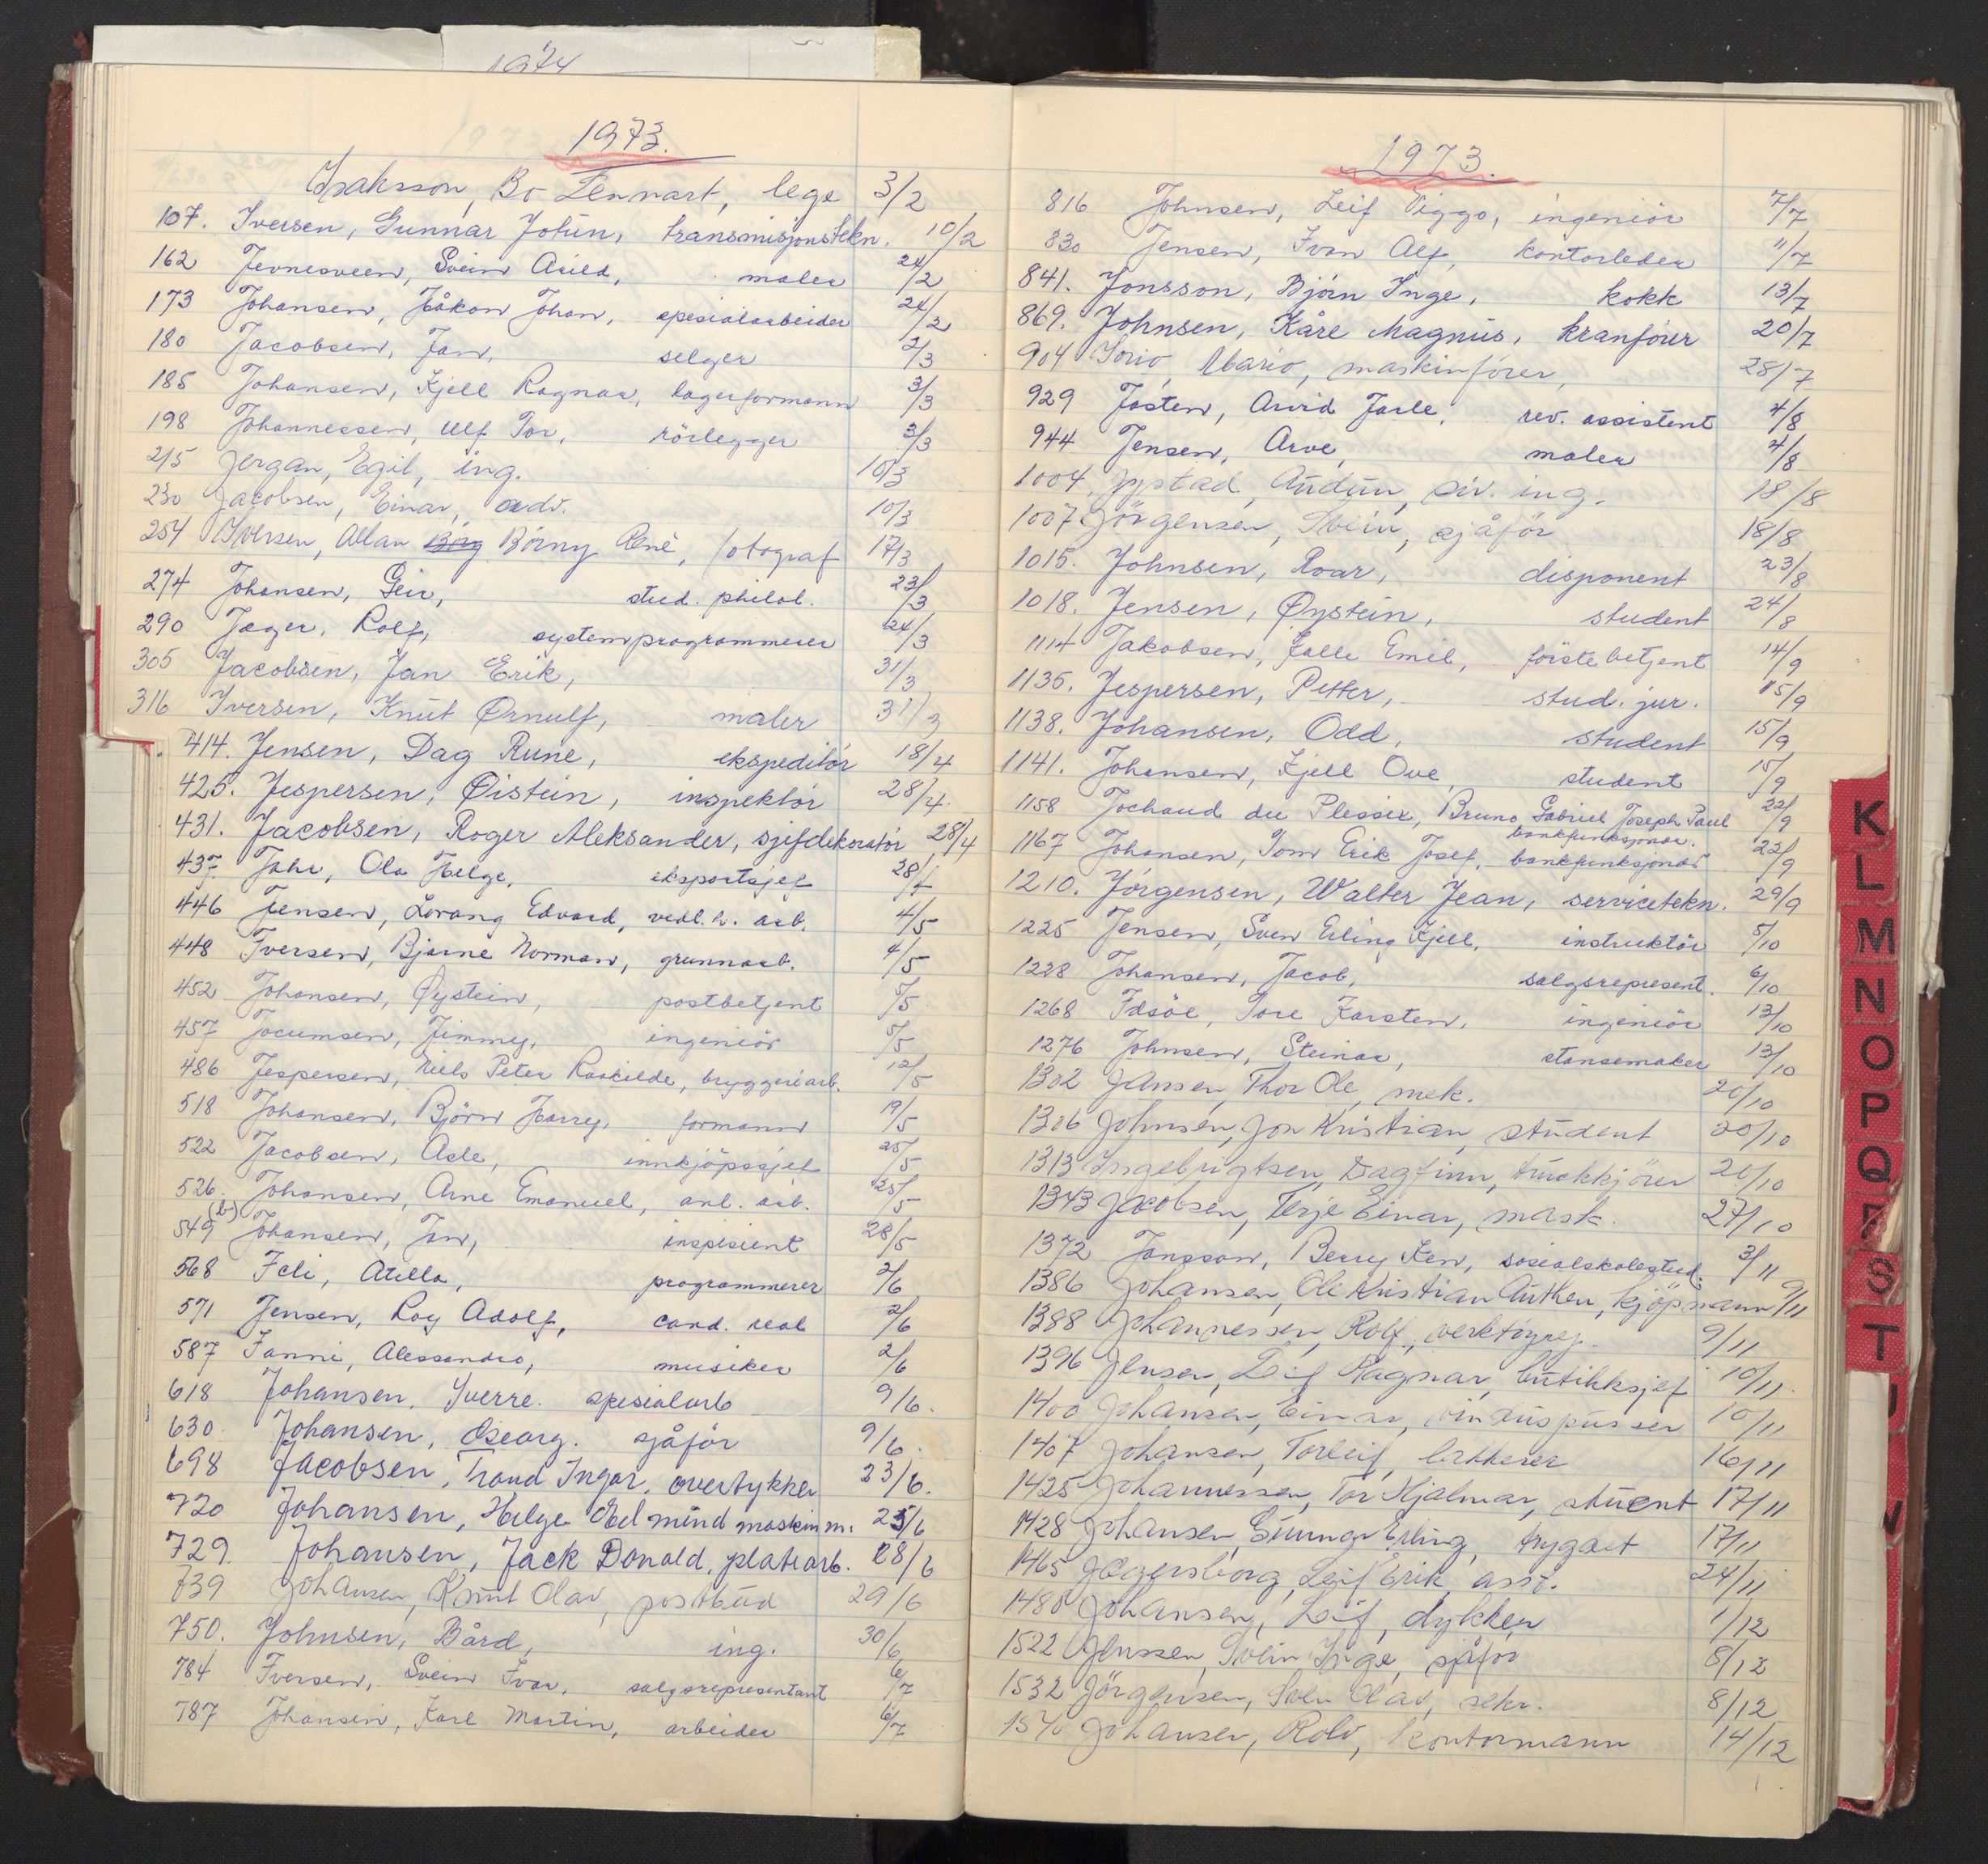 1974
1973.
Isaksson, Bo Lennart, lege 3/2
107. Iversen, Gunnar Jotun, transmisjonstekn. 10/2
162 Jevnesveen, Svein Arild, maler 24/2
173 Johansen, Håkon Johan, spesialarbeider 24/2
180 Jacobsen, Jan, selger 2/3
185 Johansen, Kjell Ragnar, lagerformann 3/3
198 Johannessen, Ulf Tor, rörlegger 3/3
215 Jergan, Egil, ing. 10/3
230 Jacobsen, Einar, adv. 10/3
254 Iversen, Allan Börg Börny René, fotograf 17/3
274 Johansen, Geir, stud. philol. 23/3
290 Jager, Rolf, systemprogrammerer 24/3
305 Jacobsen, Jan Erik, 31/3
316 Iversen, Knut Ørnulf, maler 31/3
414. Jensen, Dag Rune, ekspeditör 18/4
425. Jespersen, Øistein, inspektör 28/4.
431. Jacobsen, Roger Aleksander, sjefdekoratör 28/4
437 Jahr, Ola Helge, eksportsjef 28/4
446 Jensen, Lorang Edvard, vedl.h. arb. 4/5
448 Iversen, Bjarne Norman, grunnarb. 4/5
452 Johansen, Øystein, postbetjent 5/5
457 Jocumsen, Jimmy, ingeniör 5/5
486 Jespersen, Niels Peter Roskilde, bryggeriarb. 12/5
518 Johansen, Björn Harry, formann 19/5
522 Jacobsen, Asle, innkjöpssjef 25/5
526. Johansen, Arne Emanuel, anl. arb. 25/5
549 (b) Johansen, Jan, inspisient 28/5
568 Icli, Atilla, programmerer 2/6
571 Jensen, Roy Adolf, cand. real 2/6
587 Ianni, Alessandro, musiker 2/6
618 Johansen, Sverre. spesialarb 9/6.
630. Johansen, Georg. sjåför 9/6.
698 Jacobsen, Trond Ingar, overtykker 23/6.
720 Johansen, Helge Edmund maskinm. 25/6
729. Johansen, Jack Donald, platearb. 28/6
739 Johansen, Knut Olav, postbud 29/6
750. Johnsen, Bård, ing. 30/6
784 Iversen, Svein Ivar, salgsrepresentant 6/7
787 Johansen, Karl Martin, arbeider 6/7
1973.
816 Johnsen, Leif Viggo, ingeniör 7/7
830 Jensen, Ivan Alf, kontorleder 11/7
841. Jonsson, Björn Inge, kokk 13/7
869. Johnsen, Kåre Magnus, kranförer 20/7
904 Iorio, Mario, maskinförer, 28/7
929 Josten, Arvid Jarle, rev. assistent 4/8
944 Jensen, Arve, maler 4/8
1004, Jystad, Audun, siv. ing. 18/8
1007 Jörgensen, Svein, sjåför 18/8
1015. Johnsen, Roar, disponent 23/8
1018. Jensen, Øystein, student 24/8
1114 Jakobsen, Kalle Emil, förstebetjent 14/9
1135. Jespersen, Petter, stud. jur. 15/9
1138. Johansen, Odd, student 15/9
1141. Johansen, Kjell Ove, student 15/9
1158 Jochaud du Plessix, Bruno Gabriel Joseph Paul 22/9
bankfunksjonær.
1167 Johansen, Tom Erik Josef, bankfunksjonær 22/9
1210. Jörgensen, Walter Jean, servicetekn. 29/9
1225 Jensen, Sven Erling Kjell, instruktör 5/10
1228 Johansen, Jacob, salgsrepresent. 6/10
1268 Idsöe, Tore Karsten, ingeniör 13/10
1276 Johnsen, Steinar, stansemaker 13/10
1302 Jansen, Thor Ole, mek. 20/10
1306 Johnsen, Jon Kristian, student 20/10
1313 Ingebrigtsen, Dagfinn, truckkjörer 20/10
1343 Jacobsen, Terje Einar, mask. 27/10
1372 Jonsson, Berry Ken, sosialskolestud. 3/11
1386 Johansen, Ole Kristian Authen, kjöpmann 9/11
1388 Johannessen, Rolf, verktöym. 9/11
1396 Jensen, Leif Ragnar, butikksjef 10/11.
1400 Johansen, Einar, vinduspusser 10/11
1407 Johansen, Torleif, lakkerer 16/11
1425 Johannessen, Tor Hjalmar, stuent 17/11
1428 Johansen, Gunnar Erling, trygdet 17/11
1465 Jægersborg, Leif Erik, asst. 24/11
1480 Johansen, Leif, dykker 1/12
1522 Jenssen, Svein Inge, sjåför 8/12
1532 Jörgensen, Sven Olav, sekr. 8/12
1540 Johansen, Rolv, kontormann 14/12
K
L
M
N
O
P
Q
R
S
T